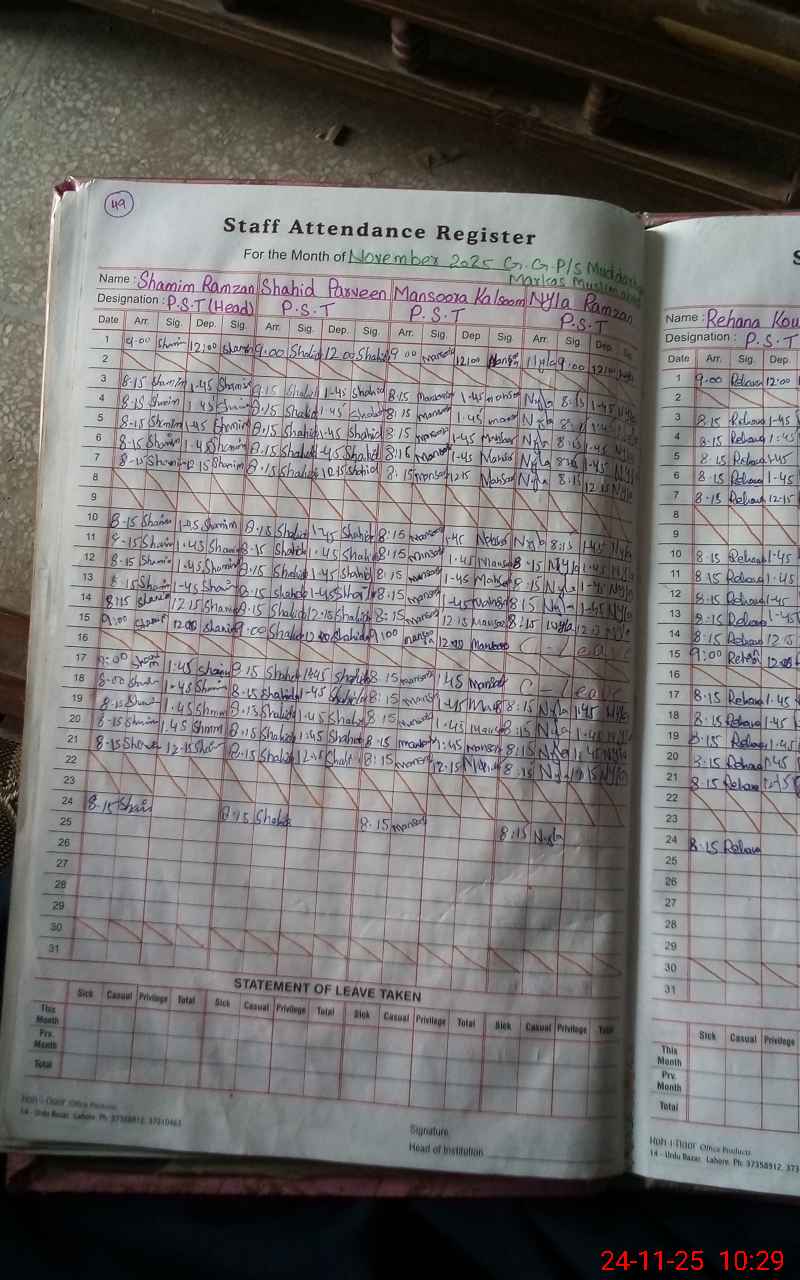 49
Staff Attendance Register
For the Month of November 2025 G.G.P/S
Markas
Name : Shamim Ramzan Shahid Parveen Mansoora Kalsoom Nyla Ramzan
Designation : P.S.T (Head) P.S.T P.S.T P.S.T
Date Arr. Sig. Dep. Sig. Arr. Sig. Dep. Sig. Arr. Sig. Dep. Sig. Arr. Sig. Dep. Sig.
1 9.00 Shamim 12:00 Shamim 9.00 Shahid 12.00 Shahid 9.00 12:00 Nyla 9:00 12:00
2
3 8.15 Shamim 1.45 Shamim 8.15 Shahid 1-45 Shahid 8:15 1-45 Nyla 8:15 1-45 Nyla
4 8.15 Shamim 1.45 8.15 Shahid 1.45 Shahid 8:15 1.45 Nyla 8:15
5 8-15 Shamim 1.45 Shamim 8.15 Shahid 1-45 Shahid 8:15 1-45 Nyla 8:15 1-45 Nyla
6 8-15 Shamim 1.45 Shamim 8.15 Shahid 1.45 Shahid 8:15 1-45 Nyla 1-45 Nyla
7 8-15 Shamim 12.15 Shamim 8.15 Shahid 12.15 Shahid 8:15 12:15 Nyla 8:15 12:15 Nyla
8
9
10 8.15 Shamim 1.45 Shamim 8.15 Shahid 1.45 Shahid 8:15 1.45 Nyla 8:15 1.45 Nyla
11 8-15 Shamim 1.45 Shamim 8.15 Shahid 1.45 Shahid 8:15 1.45 8:15 Nyla 1.45 Nyla
12 8.15 Shamim 1.45 Shamim 8.15 Shahid 1.45 Shahid 8:15 1-45 8:15 Nyla 1-45 Nyla
13 8.15 Shamim 1.45 8.15 Shahid 1-45 8:15 1-45 8:15 Nyla 1-45 Nyla
14 8:15 Shamim 12.15 Shamim 8.15 Shahid 12.15 Shahid 8:15 12.15 8:15 Nyla 12.15 Nyla
15 9:00 Shamim 12:00 Shamim 9.00 Shahid 12:00 Shahid 9:00 12:00 C - Leave
16
17 1.45 Shamim 8.15 Shahid 1.45 Shahid 8.15 1.45 C - Leave
18 1.45 Shamim 8.15 Shahid 1.45 Shahid 8:15 1.45 8:15 Nyla 1.45 Nyla
19 8.15 1.45 Shamim 8.15 Shahid 1.45 Shahid 8:15 1.45 8:15 Nyla 1.45 Nyla
20 8.15 Shamim 1.45 Shamim 8.15 Shahid 1.45 Shahid 8.15 1:45 8:15 Nyla 1.45 Nyla
21 8.15 12.15 8.15 Shahid 12.15 Shahid 8:15 12.15 8:15 Nyla 12.15 Nyla
22
23
24 8.15 Sham 8.15 Shahid 8.15 8:15 Nyla
25
26
27
28
29
30
31
STATEMENT OF LEAVE TAKEN
Sick Casual Privilege Total Sick Casual Privilege Total Sick Casual Privilege Total Sick Casual Privilege Total
This Month
Prv. Month
Total
Office Products
14 - Urdu Bazar, Lahore. Ph: 37358912,
Signature
Head of Institution
S
Name : Rehana
Designation : P.S.T
Date Arr. Sig. Dep.
1 9.00 Rehana 12:00
2
3 8.15 Rehana 1.45
4 8.15 Rehana 1.45
5 8.15 Rehana 1.45
6 8.15 Rehana 1.45
7 8.15 Rehana 12.15
8
9
10 8.15 Rehana 1.45
11 8.15 Rehana 1.45
12 8.15 Rehana 1.45
13 8.15 Rehana 1.45
14 8.15 Rehana 12.15
15 9:00
16
17 8.15 Rehana 1.45
18 8.15 Rehana 1.45
19 8.15 Rehana 1.45
20 8.15 Rehana 1.45
21 8.15 Rehana 12.15
22
23
24 8.15 Rehana
25
26
27
28
29
30
31
Sick Casual Privilege
This Month
Prv. Month
Total
Office Products
14 - Urdu Bazar, Lahore. Ph: 37358912, 373
24-11-25 10:29